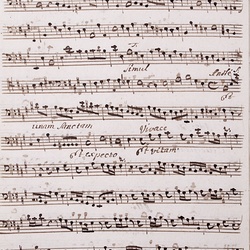 T.
simul
And.te
et
unam Sanctam Vivace
et expecto et vitam